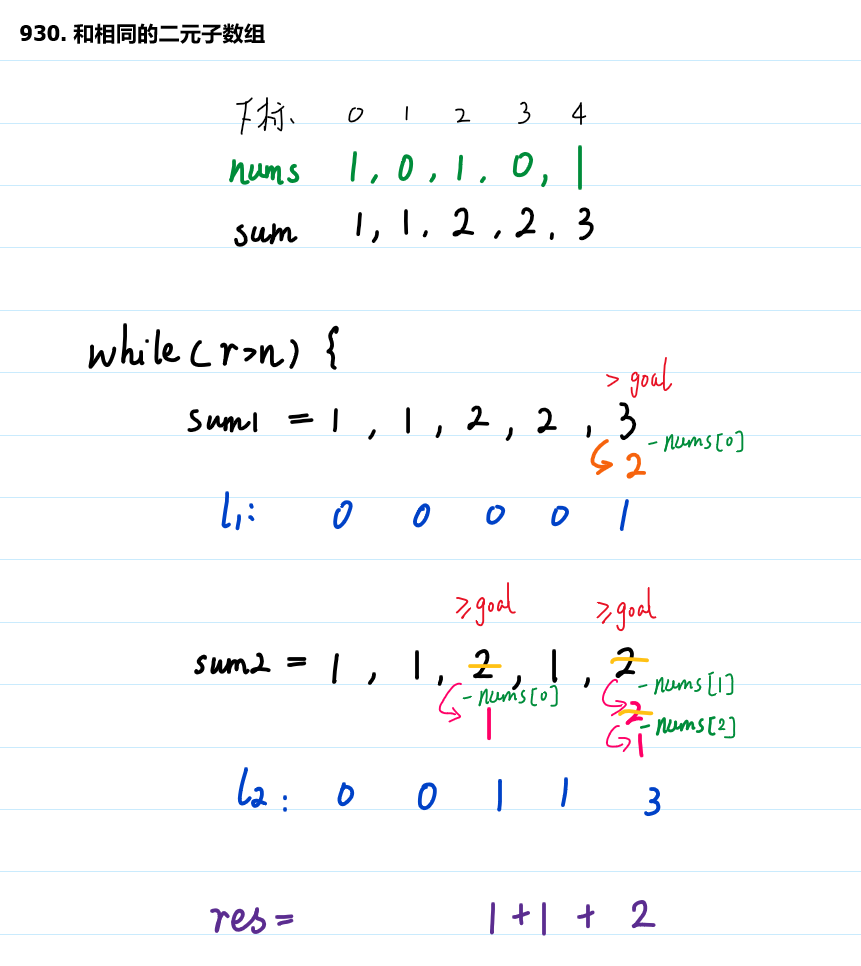 930. 和相同的二元子数组
下标、 0 1 2 3 4
nums 1, 0, 1, 0, 1
sum 1, 1, 2, 2, 3
while(r>n) {
> goal
sum1 = 1, 1, 2, 2, 3
- nums[0]
2
l1: 0 0 0 0 1
≥goal ≥goal
sum2 = 1, 1, 2, 1, 2
- nums[0] - nums[1]
1 2 - nums[2]
1
l2: 0 0 1 1 3
res= 1+1+2